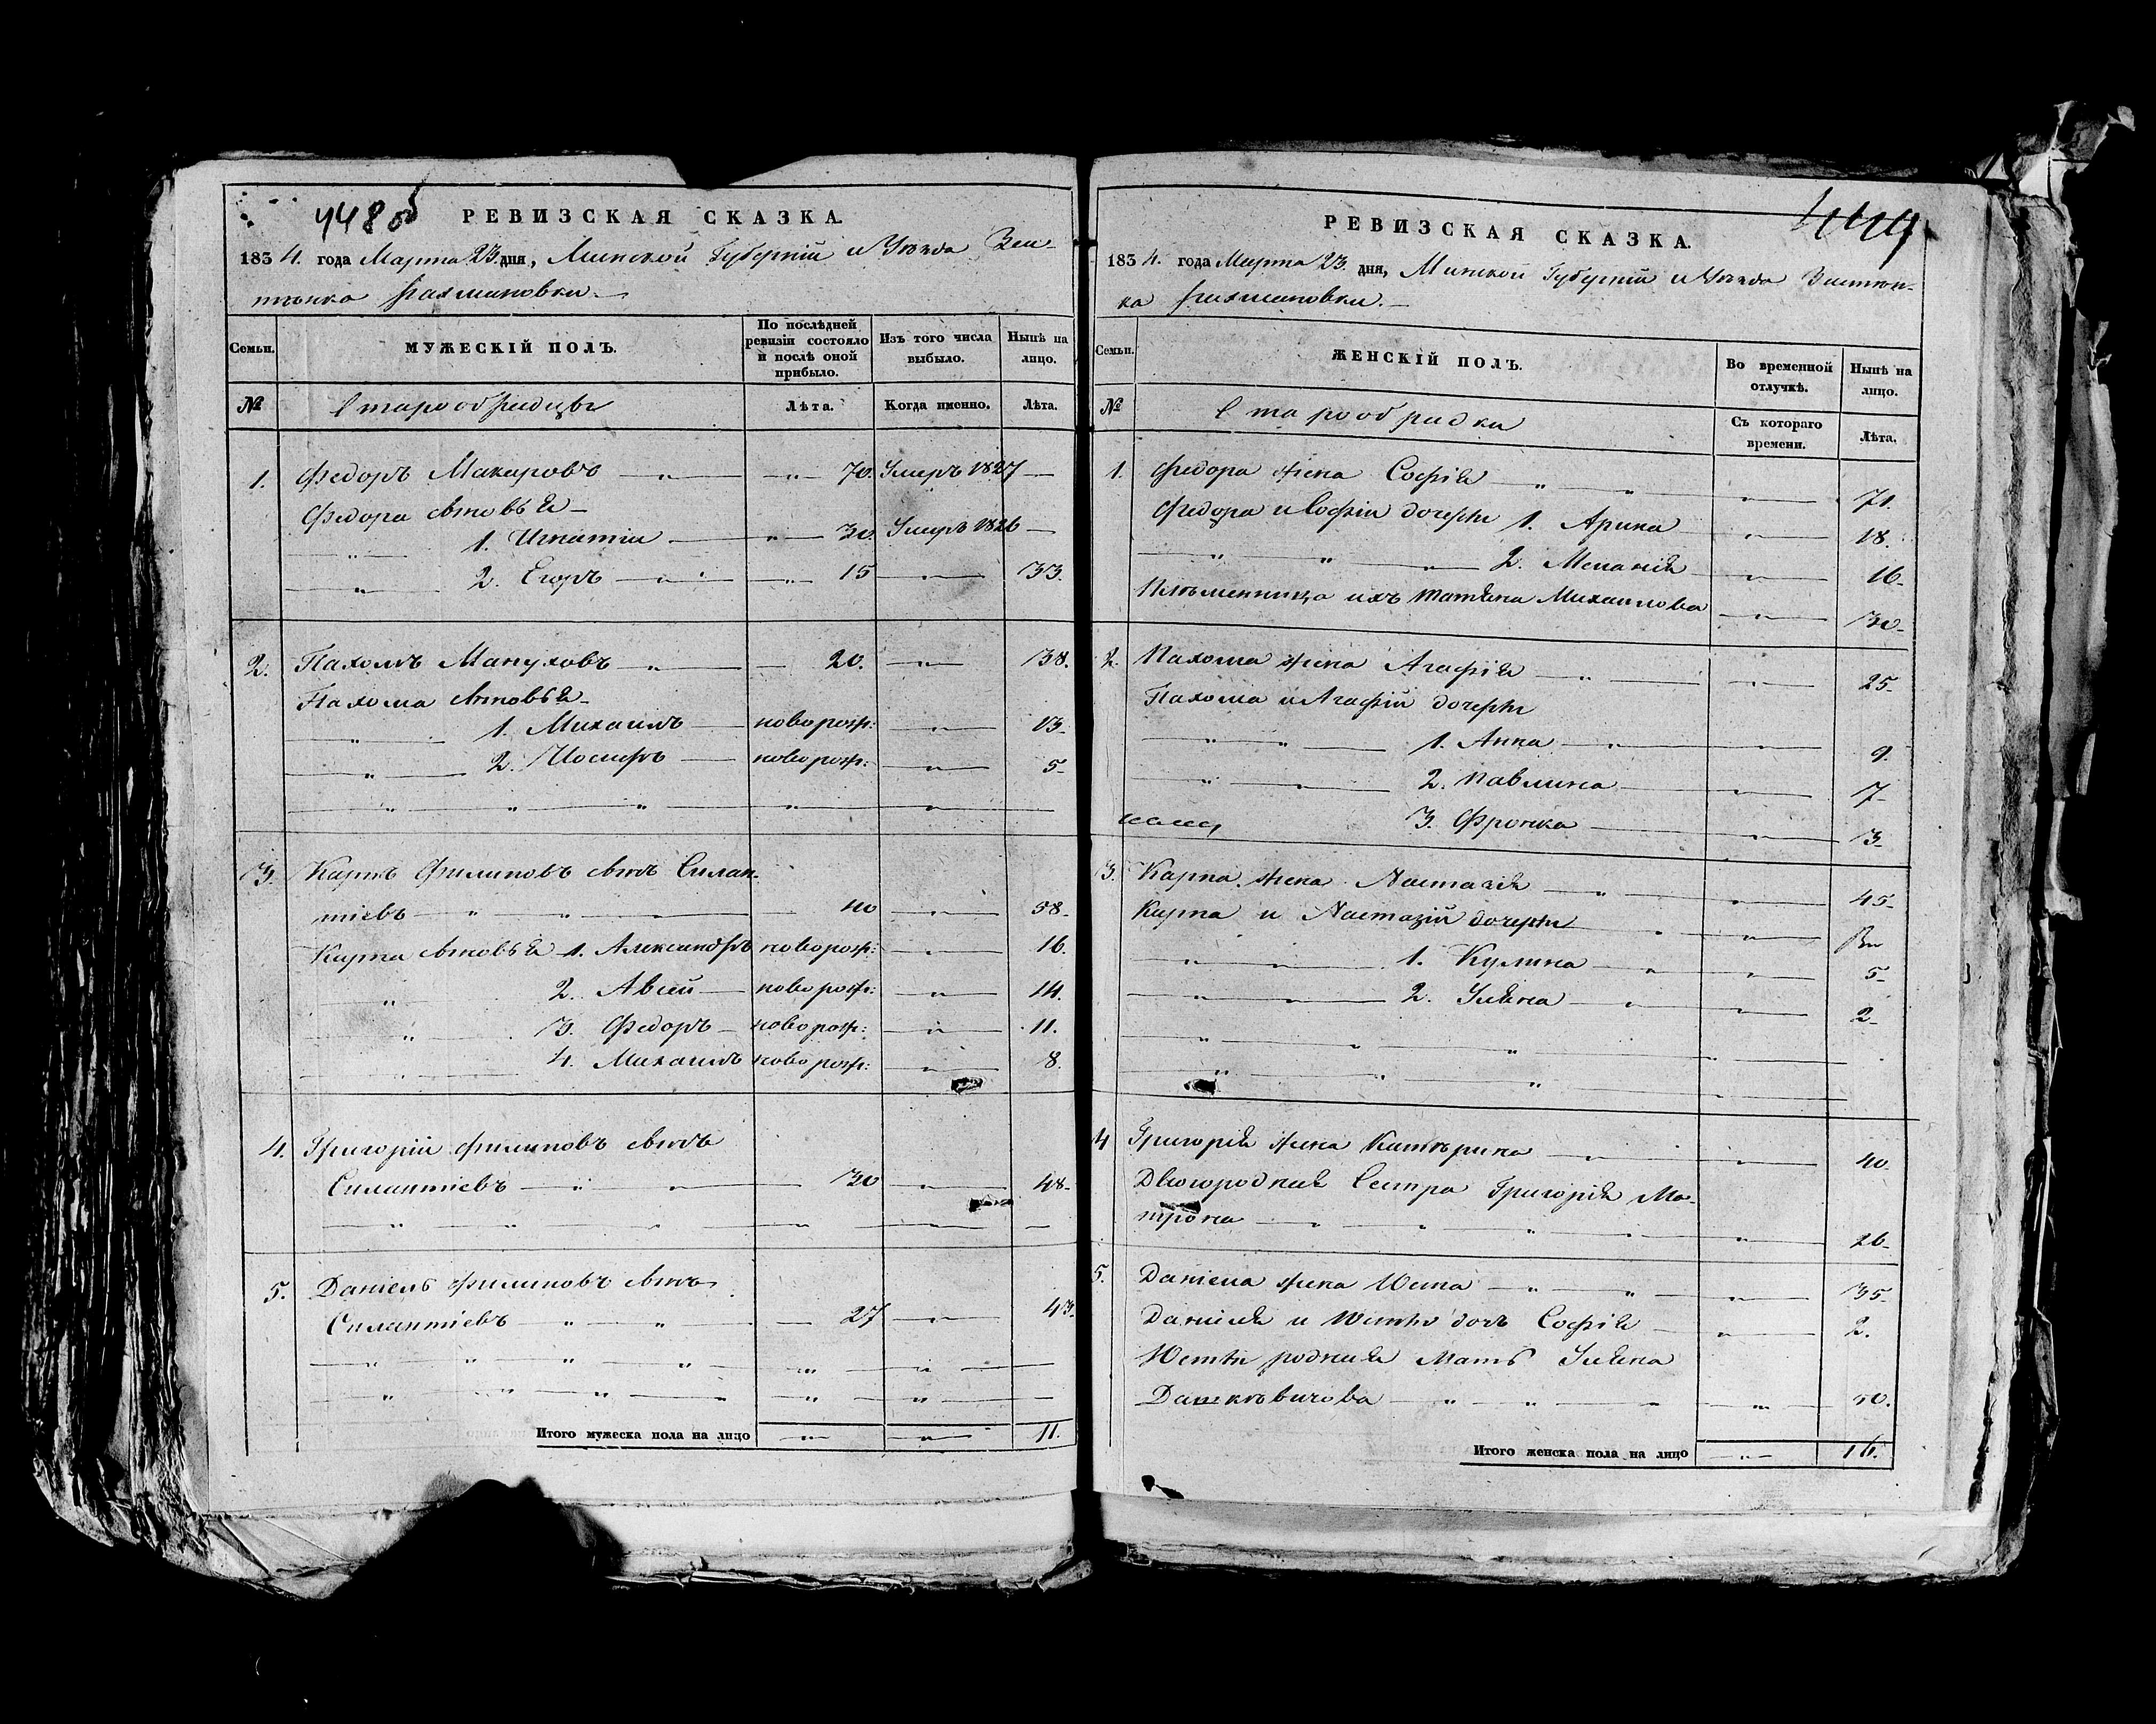 448 об
РЕВИЗСКАЯ СКАЗКА.
1834. года Марта 23. дня, Минской Губернiи и Уѣзда Зас-
тѣнка Рахмановки.
Семьи. МУЖЕСКIЙ ПОЛЪ. По послѣдней ревизiи состояло и послѣ оной прибыло. Изъ того числа выбыло. Нынѣ на лицо.
№ Старообрядцы Лѣта. Когда именно. Лѣта.
1. Федоръ Макаровъ 70. Умеръ 1827
Федора сыновья
1. Игнатiй 30. Умеръ 1826
2. Егоръ 15 33.
2. Пахомъ Мануховъ 20. 38.
Пахома сыновья
1. Михаилъ новорож: 13.
2. Иосифъ новорож: 5
3. Карпъ Филиповъ сынъ Силан-
тiевъ 40 58
Карпа сыновья 1. Александръ новорож: 16.
2. Авсей новорож: 14.
3. Федоръ новорож: 11.
4. Михаилъ новорож: 8.
4. Григорiй Филиповъ сынъ
Силантiевъ 30 48
5. Данiель Филиповъ сынъ
Силантiевъ 27 43.
Итого мужеска пола на лицо 11.
449
РЕВИЗСКАЯ СКАЗКА.
1834. года Марта 23. дня, Минской Губернiи и Уѣзда Застѣн-
ка Рахмановки.
Семьи. ЖЕНСКIЙ ПОЛЪ. Во временной отлучкѣ. Нынѣ на лицо.
№ Старообрядки Съ котораго времени. Лѣта.
1. Федора жена Софiя 71.
Федора и Софiи дочери 1. Арина 18.
2. Меланiя 16
Племенница ихъ Татяна Михаилова 30
2. Пахома жена Агафiя 25
Пахома и Агафiй дочери
1. Анна 9.
2. Павлина 7
3. Фронка 3
3. Карпа жена Настазiя 45
Карпа и Настазiй дочери
1. Кулина 5
2. Уляна 2
4 Григорiя жена Катерина 40
Двоюродная Сестра Григорiя Ма-
трона 26
5. Данiела жена Юста 35
Данiеля и Юсты дочь Софiя 2.
Юсты родная Мать Уляна
Дашкѣвичова 50.
Итого женска пола на лицо 16.